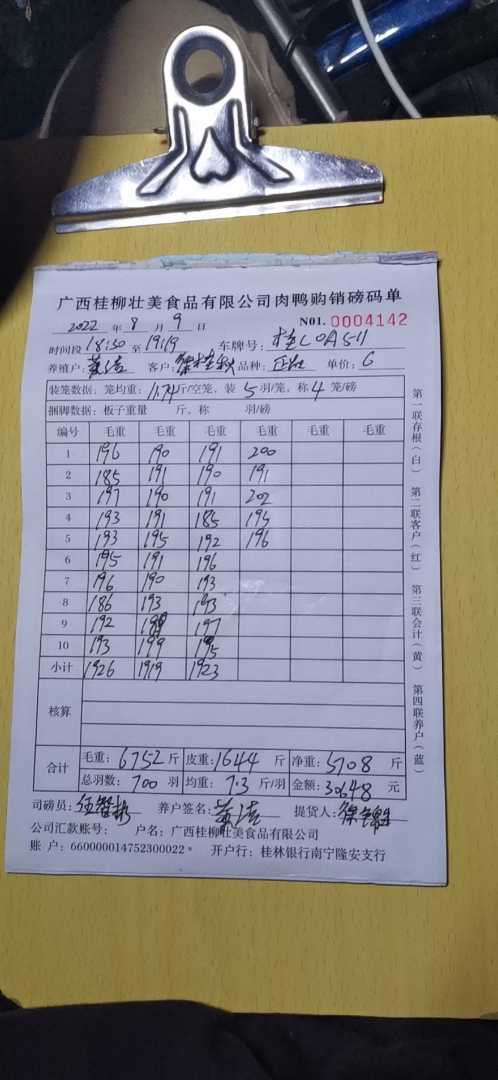 广西桂柳壮美食品有限公司肉鸭购销磅码单
2022 年 8 月 9 日 N01. 0004142
时间段 18:50 至 19:19 车牌号: 桂L0A511
养殖户: 客户: 徐桂秋 品种: 单价: 6
装笼数据: 笼均重: 11.74 斤/空笼, 装 5 羽/笼, 称 4 笼/磅
捆脚数据: 板子重量 斤, 称 羽/磅
编号 毛重 毛重 毛重 毛重 毛重 毛重
1 196 190 191 200
2 185 191 190 191
3 197 190 191 202
4 193 191 185 195
5 193 195 192 196
6 195 191 196
7 196 190 193
8 186 193 193
9 192 197
10 193 199 195
小计 1926 1919 1923
核算
合计 毛重: 6752 斤 皮重: 1644 斤 净重: 5108 斤
总羽数: 700 羽 均重: 7.3 斤/羽 金额: 30648 元
司磅员: 养户签名: 提货人:
公司汇款账号: 户名: 广西桂柳壮美食品有限公司
账 户: 660000014752300022。 开户行: 桂林银行南宁隆安支行
第一联存根(白) 第二联客户(红) 第三联会计(黄) 第四联养户(蓝)